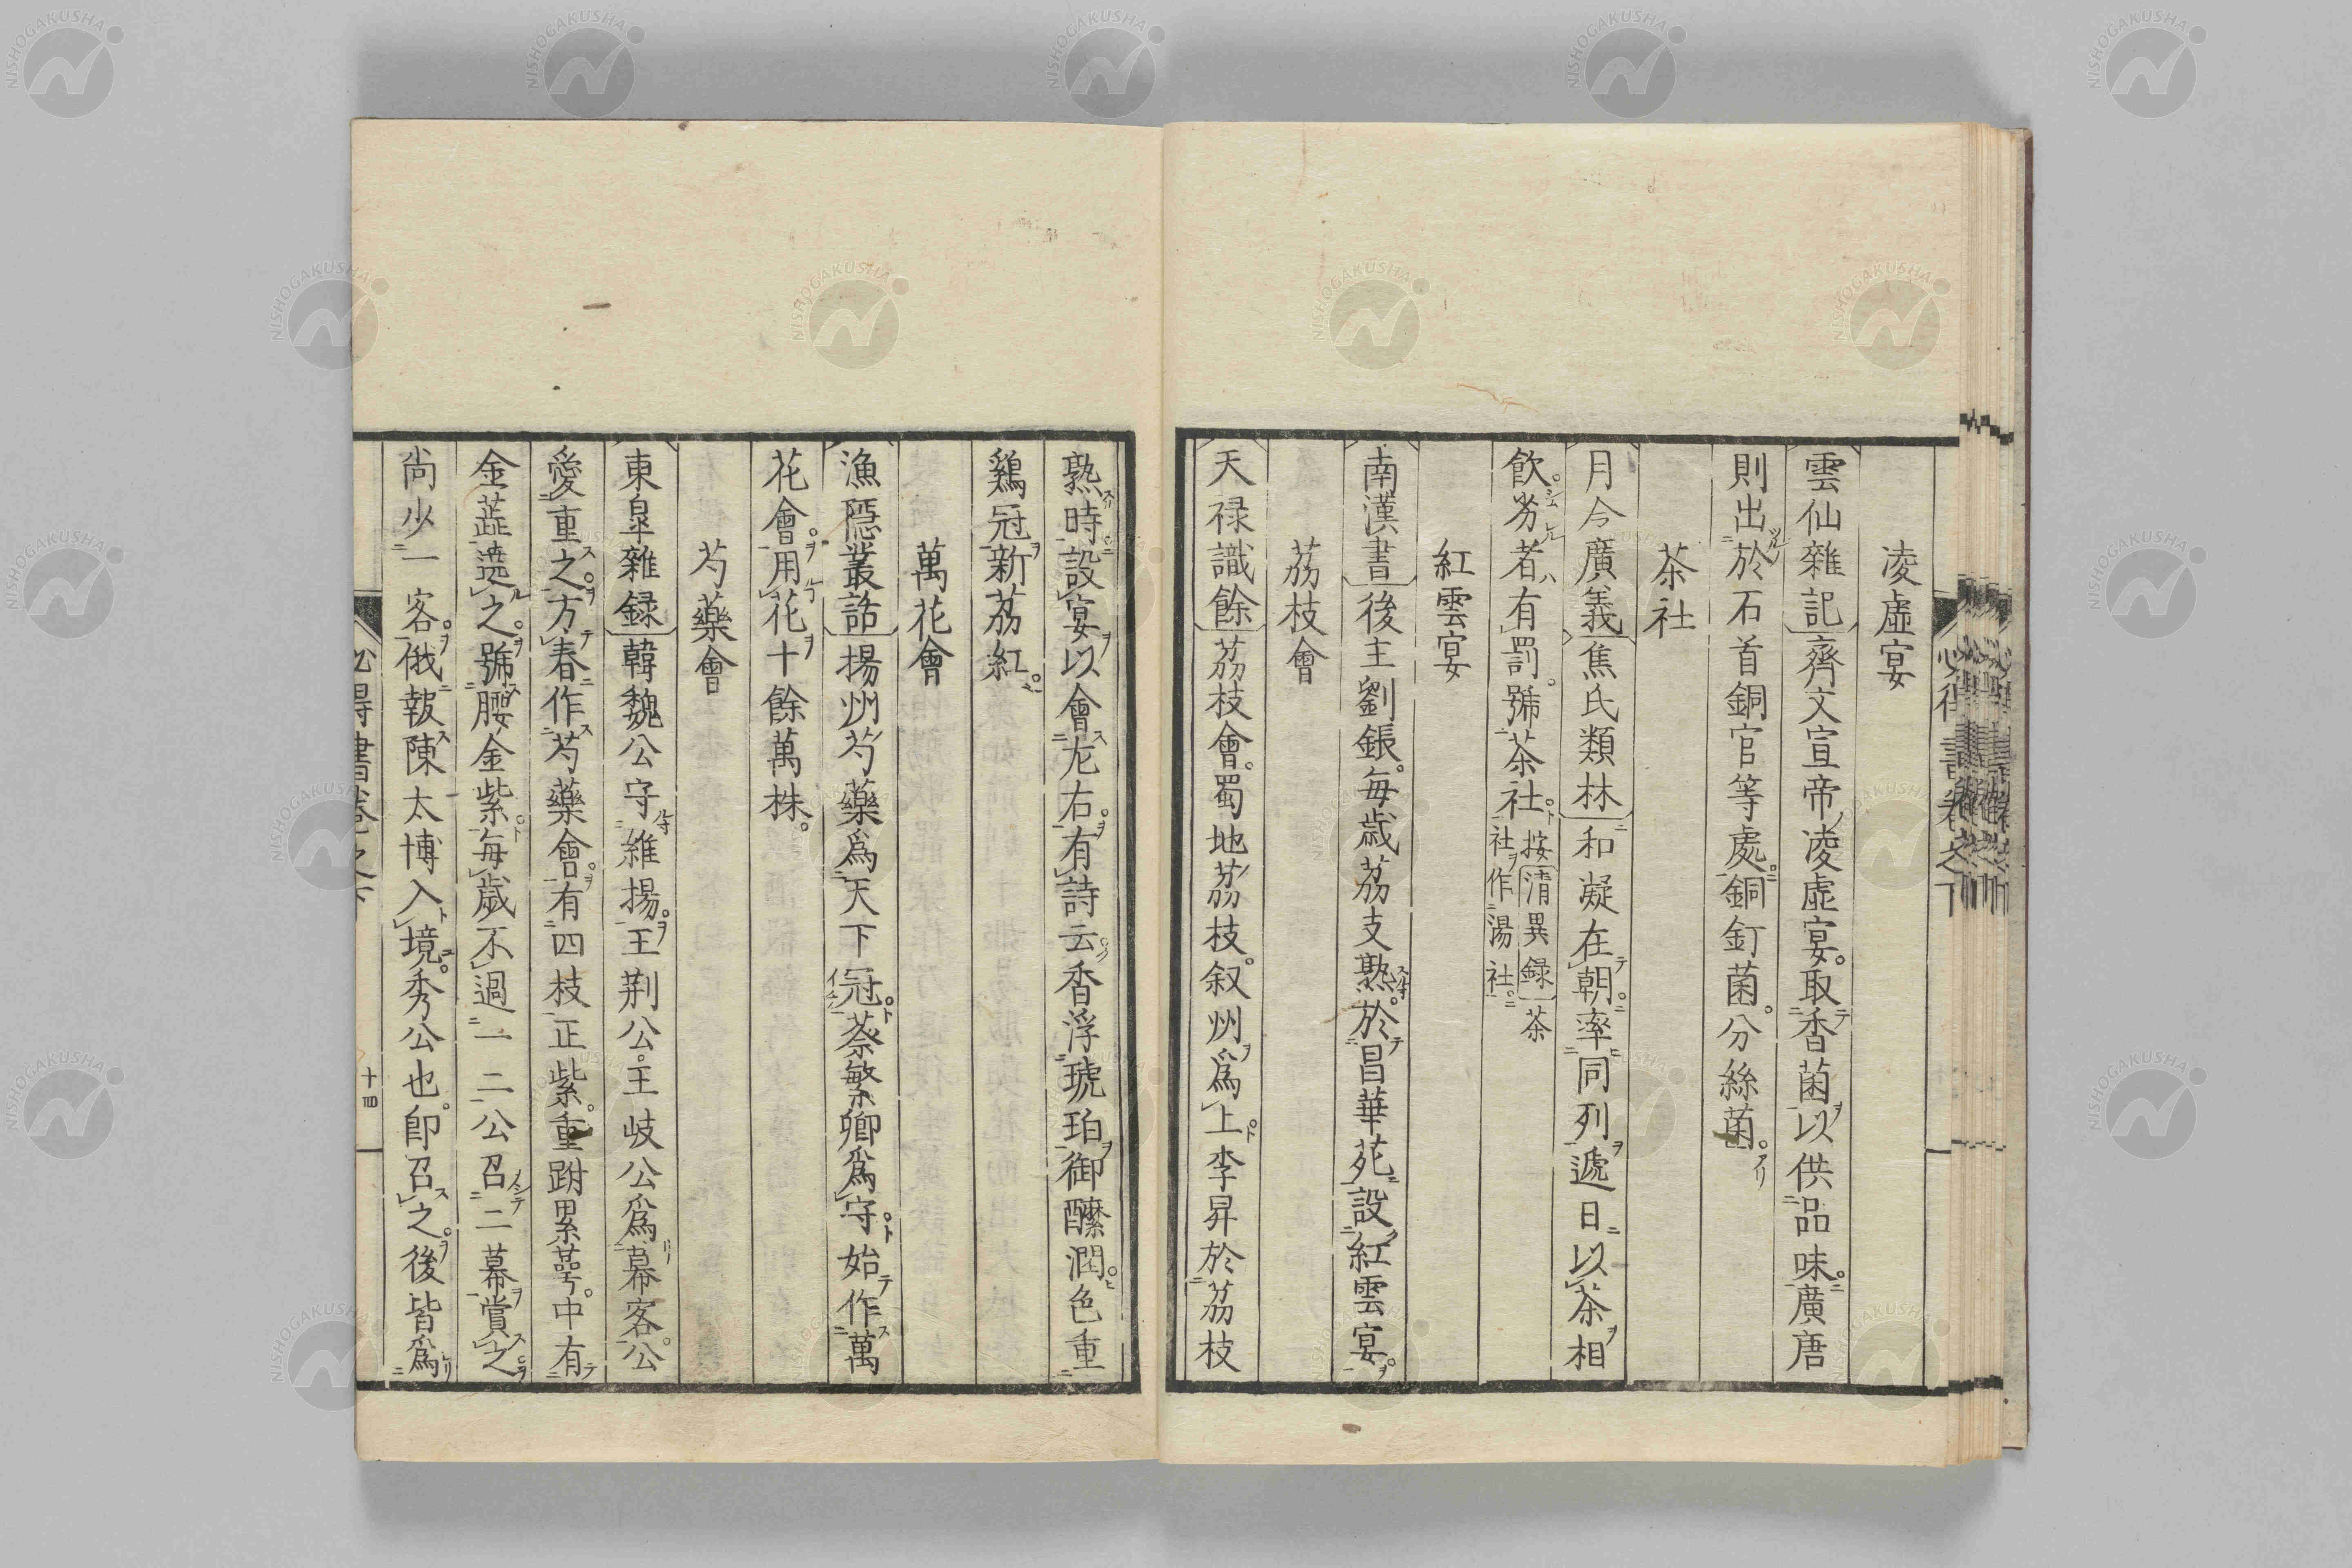 凌虛宴
雲仙雜記齊文宣帝凌虛宴。取香菌以供品味。廣唐
則出於石首銅官等處。銅釘菌。分絲菌。
茶社
月令廣義焦氏類林和凝在朝。率同列遞日以茶相
飲。劣者有罰。號茶社。按清異録茶
社作湯社。
紅雲宴
南漢書後主劉鋹。每歲荔支熟。於昌華苑設紅雲宴。
荔枝會
天禄識餘荔枝會。蜀地荔枝。叙州爲上。李昇於荔枝
熟時。設宴以會左右。有詩云。香浮琥珀御醿潤。色重
鷄冠新荔紅。
萬花會
漁隱叢話揚州芍藥爲天下冠。蔡繁卿爲守。始作萬
花會。用花十餘萬株。
芍藥會
東皐雜録韓魏公守維揚。王荆公。王岐公爲幕客。公
愛重之。方春作芍藥會。有四枝正紫。重跗累萼。中有
金蘂遶之。號腰金紫。每歲不過一二。公召二幕賞之。
尚少一客。俄報陳太博入境。秀公也。卽召之。後皆爲
心得書卷之下
十四
NISHOGAKUSHA